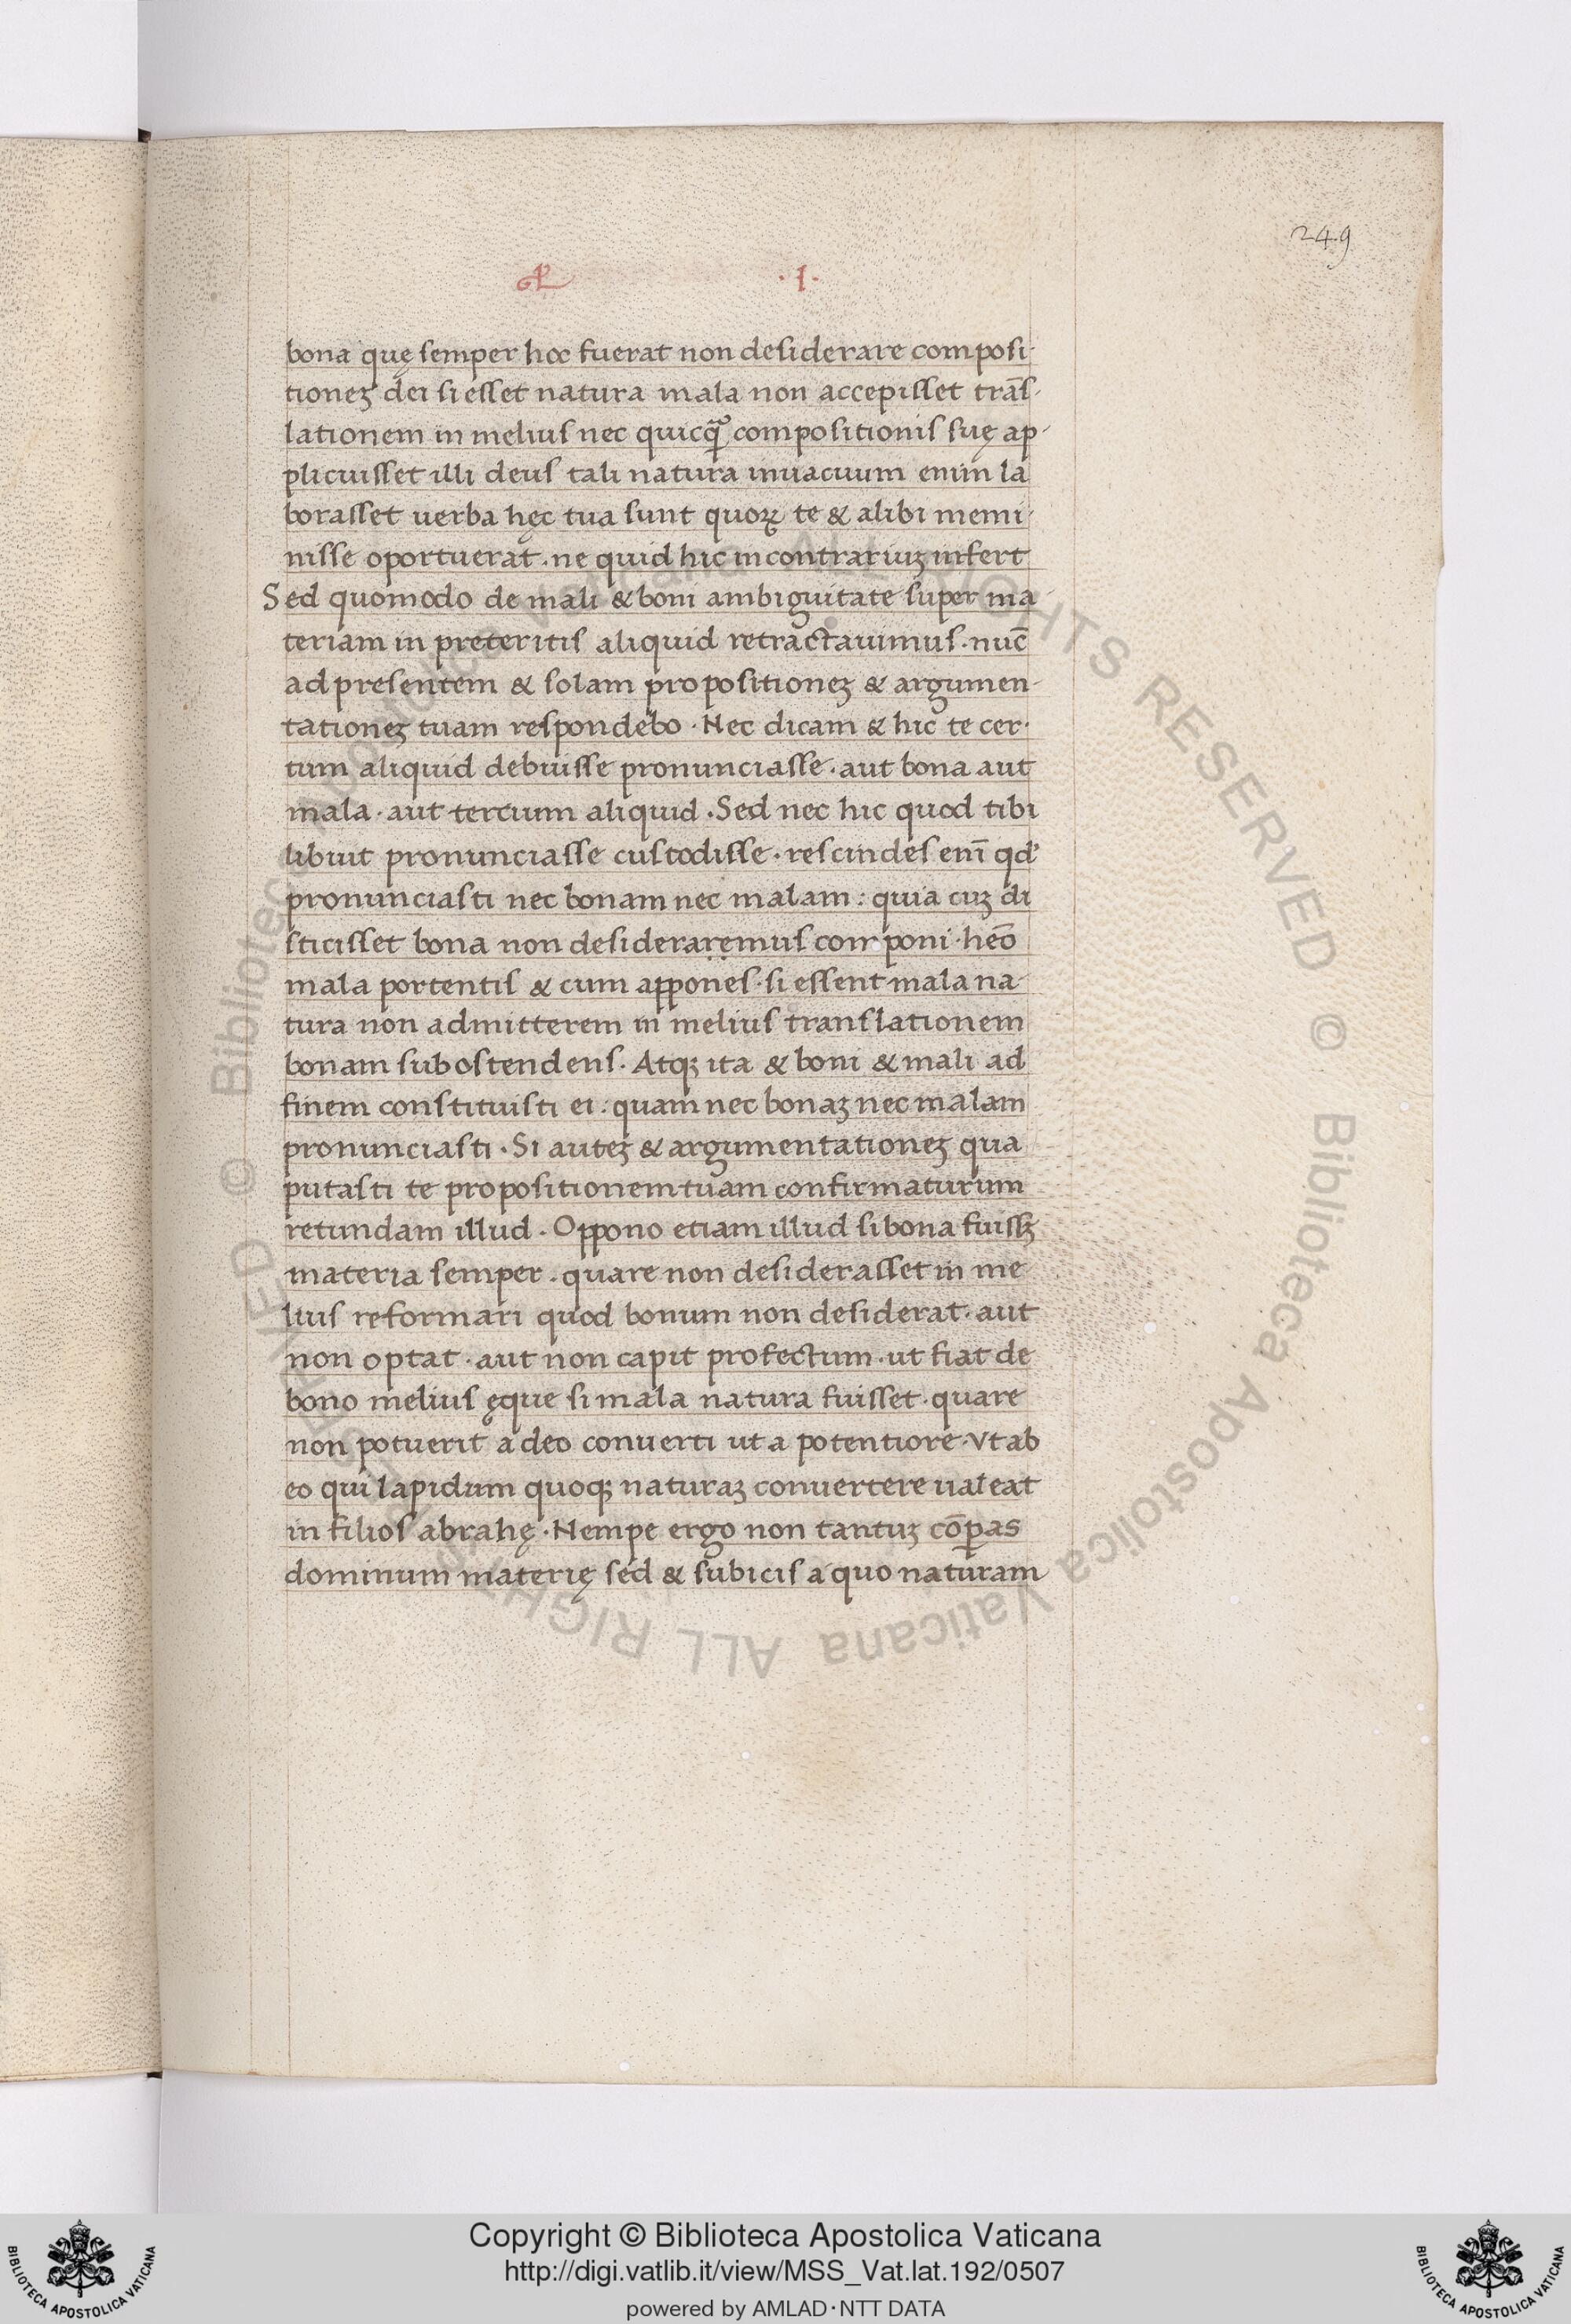 249
·I·
bona quę semper hoc fuerat non desiderare composi-
tioneꝫ dei si esset natura mala non accepisset trãs-
lationem in melius nec quicꝗ̃ compositionis suę ap-
plicuisset illi deus tali natura inuacuum enim la
borasset uerba hęc tua sunt quoꝝ te & alibi memi-
nisse oportuerat · ne quid hic in contrariuꝫ infert
Sed quomodo de mali & boni ambiguitate super ma-
teriam in preteritis aliquid retractauimus · nũc
ad presentem & solam propositioneꝫ & argumen-
tationeꝫ tuam respondebo · Nec dicam & hic te cer-
tum aliquid debuisse pronunciasse · aut bona aut
mala · aut tercium aliquid · Sed nec hic quod tibi
libuit pronunciasse custodisse · rescindes enĩ qd'
pronunciasti nec bonam nec malam : quia cuꝫ di
sticisset bona non desideraremus com poni · heõ
mala portentis & cum appones · si essent mala na-
tura non admitterem in melius translationem
bonam subostendens · Atqꝫ ita & boni & mali ad
finem constituisti ei : quam nec bonaꝫ nec malam
pronunciasti · Si auteꝫ & argumentationeꝫ qua
putasti te propositionem tuam confirmaturum
retundam illud · Oppono etiam illud si bona fuissꝫ
materia semper · quare non desiderasset in me
lius reformari quod bonum non desiderat · aut
non optat · aut non capit profectum · ut fiat de
bono melius ęque si mala natura fuisset · quare
non potuerit a deo conuerti ut a potentiore · vt ab
eo qui lapidum quoqꝫ naturaꝫ conuertere ualeat
in filios abrahę · Nempe ergo non tantuꝫ cõꝑas
dominum materię sed & subicis a quo naturam
© Biblioteca Apostolica Vaticana ALL RIGHTS RESERVED © Biblioteca Apostolica Vaticana ALL RIGHTS RESERVED
Copyright © Biblioteca Apostolica Vaticana
http://digi.vatlib.it/view/MSS_Vat.lat.192/0507
powered by AMLAD·NTT DATA
BIBLIOTECA APOSTOLICA VATICANA
BIBLIOTECA APOSTOLICA VATICANA